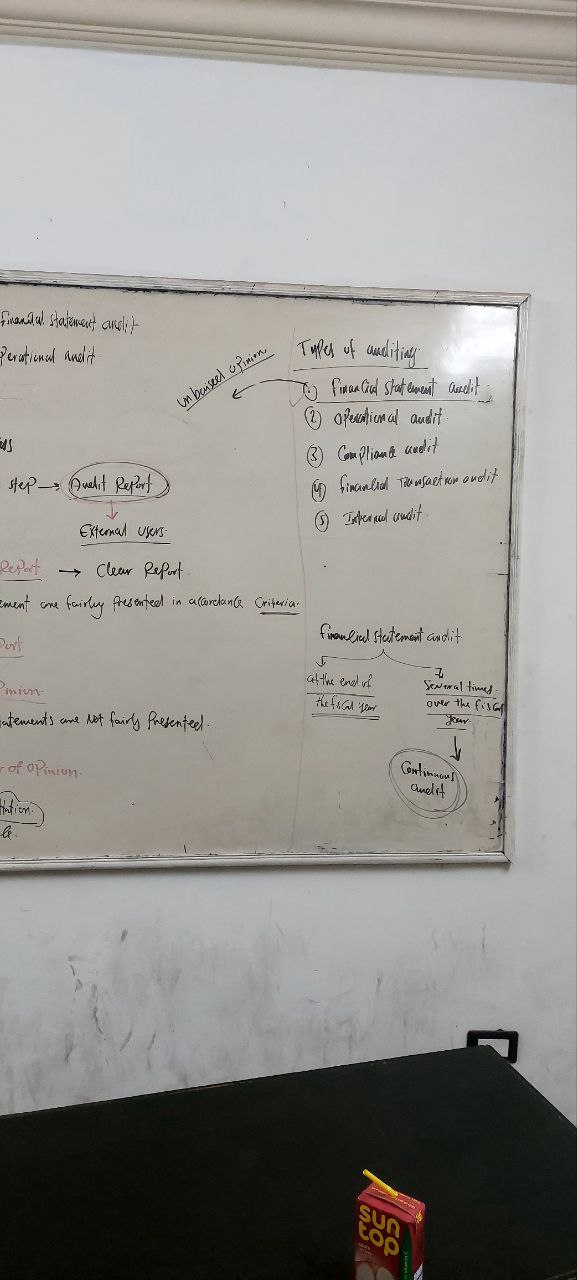 Financial statement audit
perational audit.
step → Audit Report
External users.
Report → Clear Report.
ement are fairly Presented in accordance Criteria.
Port
Pinion.
tatements are Not fairly Presented.
r of opinion.
tation.
unbaised opinion
Types of auditing
① financial statement audit
② operational audit.
③ Compliance audit
④ financial Transaction audit
⑤ Internal audit.
financial statement audit
at the end of
the fiscal year
Several times
over the fiscal
year
Continuous
audit
sun
top